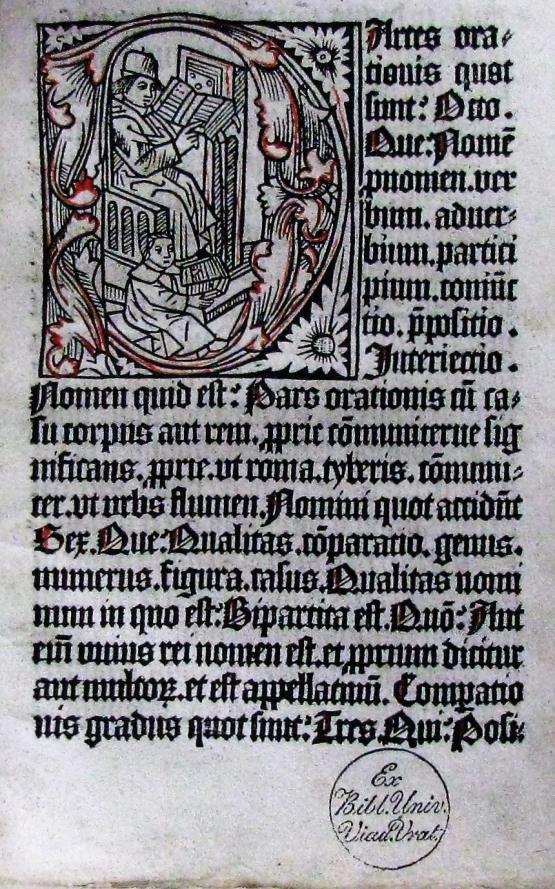 Artes ora⸗
tionis quot
sunt: Octo.
Que: Nomē
ꝓnomen. ver
bum. aduer⸗
bium. partici
pium. coniūc
tio. p̄positio.
Interiectio.
Nomen quid est: Pars orationis cū ca⸗
su corpus aut rem. ꝓprie cōmuniterue sig
nificans. ꝓprie. vt roma. tyberis. cōmuni⸗
ter. vt vrbs flumen. Nomini quot accidūt
Sex. Que: Qualitas. cōparacio. genus.
numerus. figura. casus. Qualitas nomi
num in quo est: Bipartita est. Quō: Aut
eim̄ vnius rei nomen est. et ꝓprium dicitur
aut multoꝝ. et est appellatiuū. Comꝑatio
nis gradus quot sunt: Tres. Qui: Posi⸗
Ex
Bibl. Univ.
Viad. Vrat.